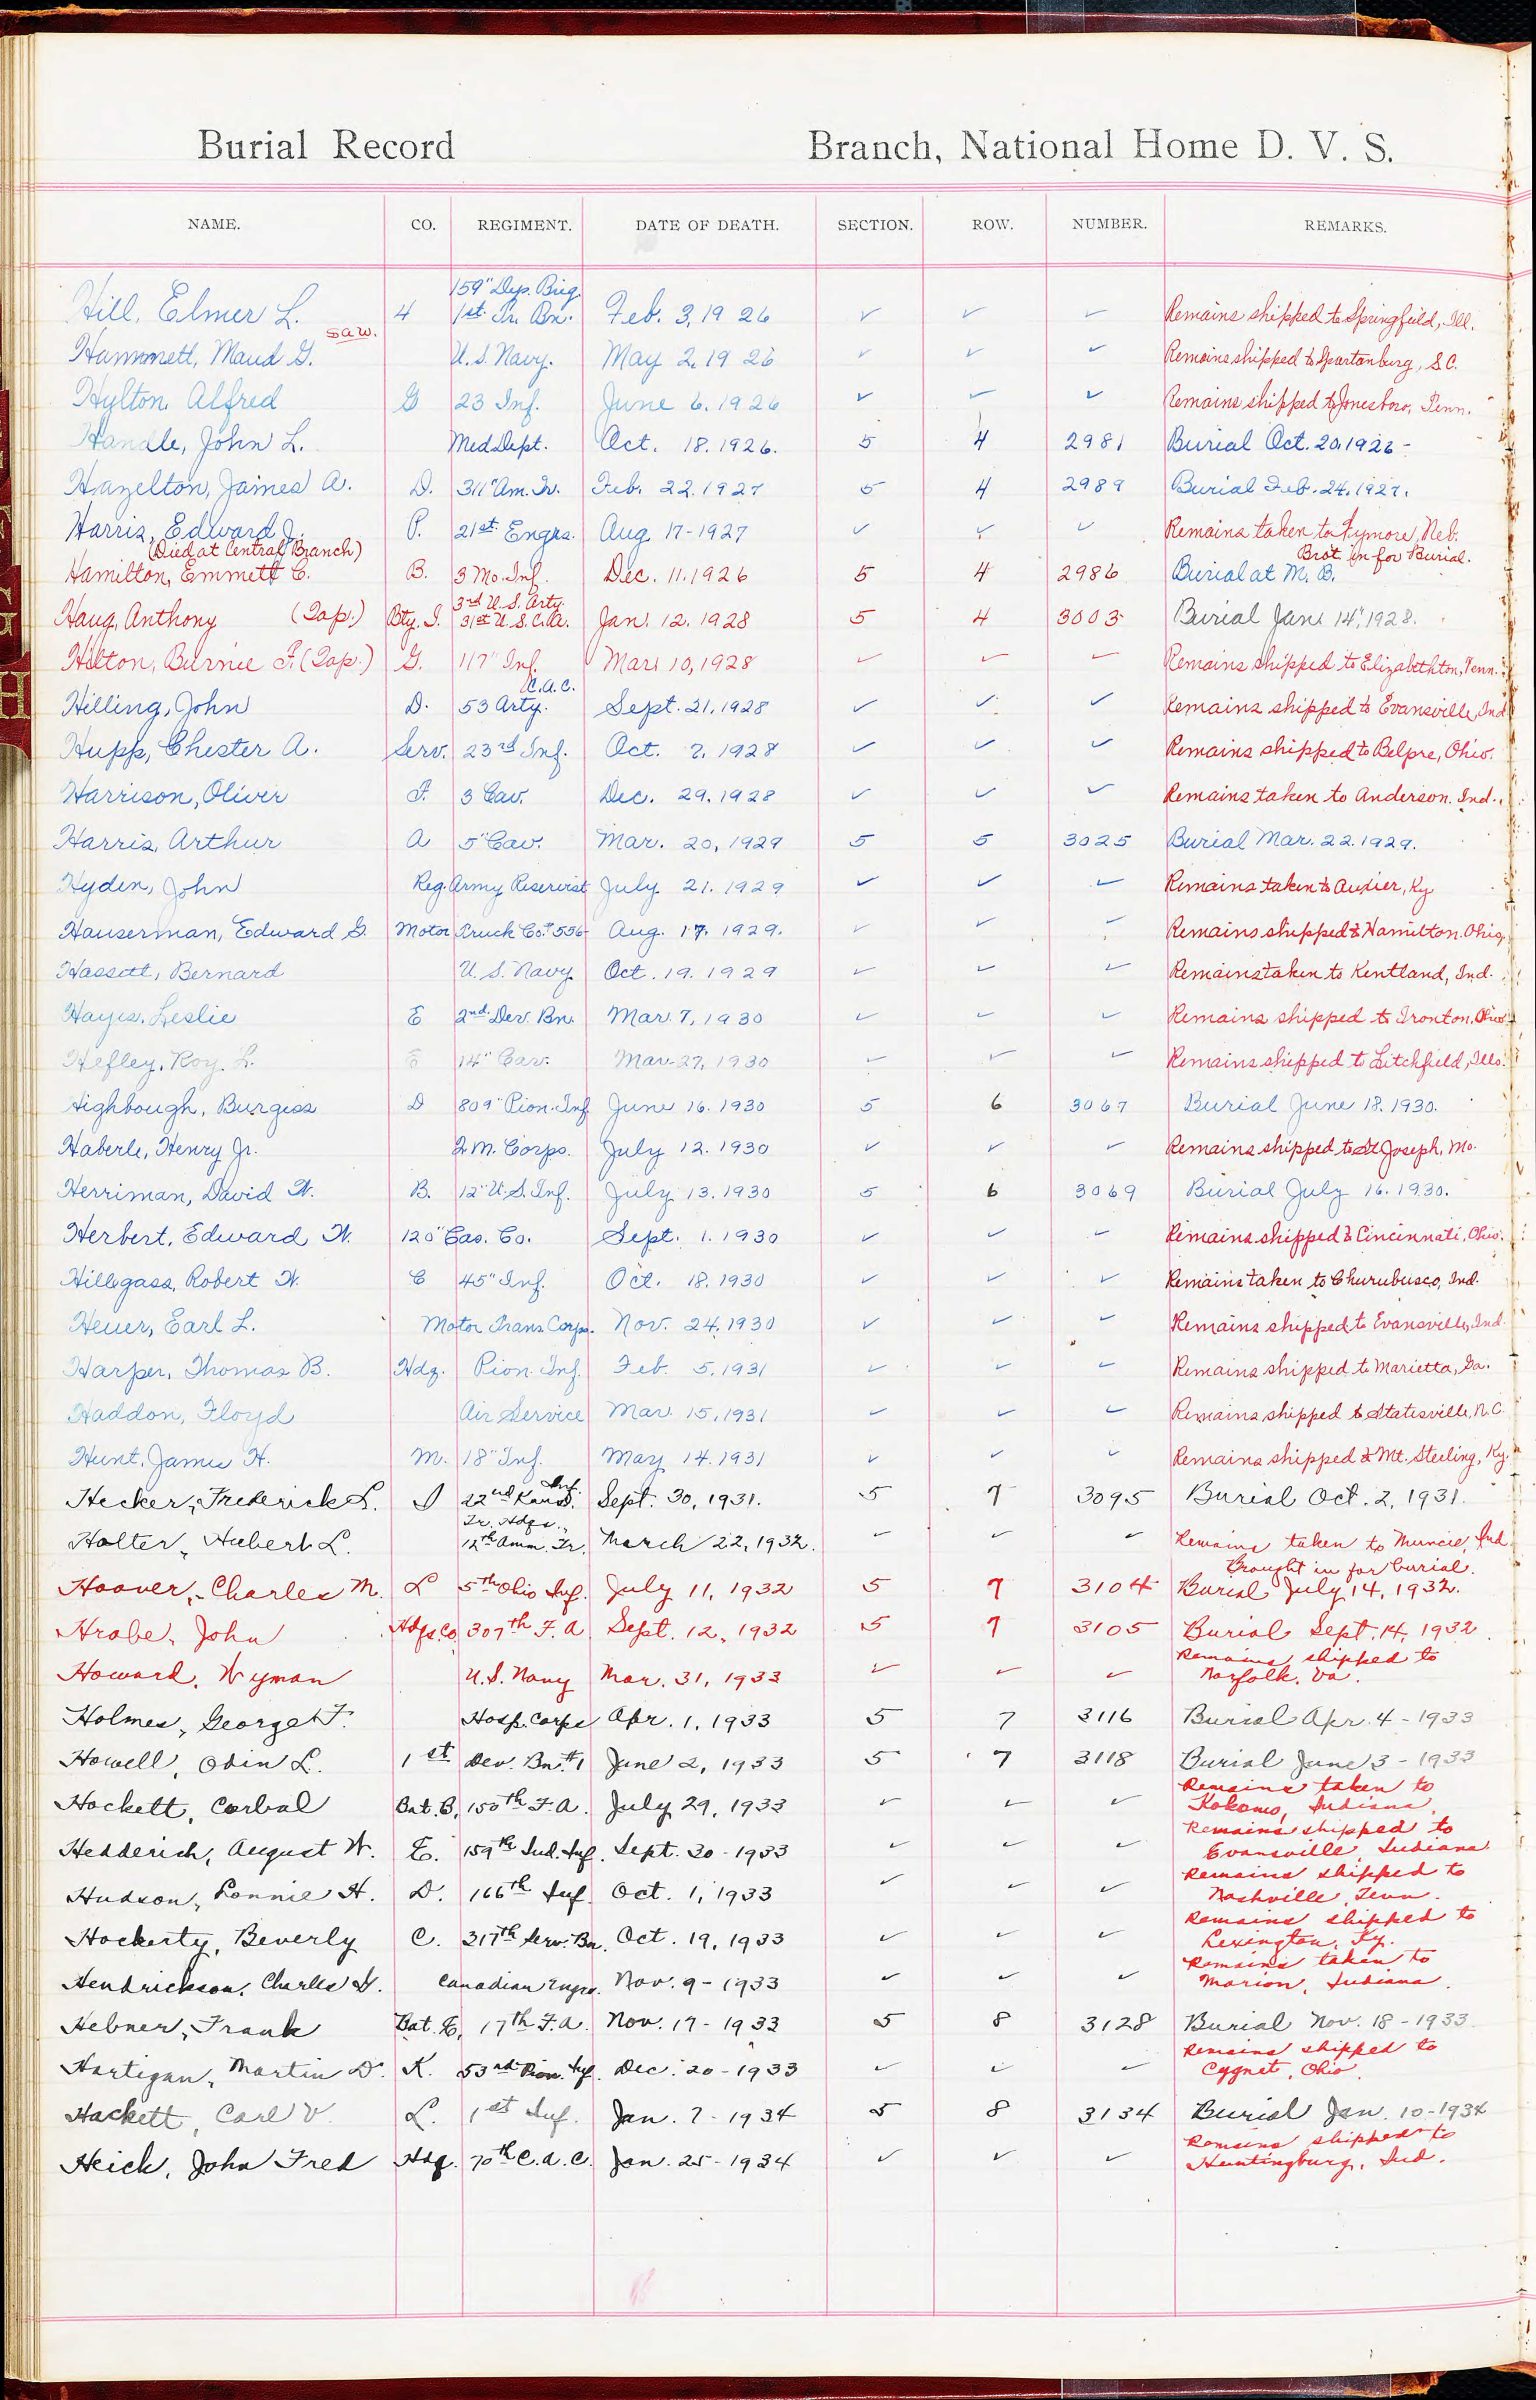 Burial Record Branch, National Home D. V. S.
NAME. CO. REGIMENT. DATE OF DEATH. SECTION. ROW. NUMBER. REMARKS.
159" Dep. Brig.
Hill, Elmer L. 4 1st Tr. Bn. Feb. 3, 1926 ✓ ✓ ✓ Remains shipped to Springfield, Ill.
S.A.W.
Hammett, Maud G. U.S. Navy. May 2, 1926 ✓ ✓ ✓ Remains shipped to Spartanburg, S.C.
Hylton, Alfred G 23 Inf. June 6. 1926 ✓ ✓ ✓ Remains shipped to Jonesboro, Tenn.
Handle, John L. Med Dept. Oct. 18. 1926. 5 4 2981 Burial Oct. 20, 1926-
Hazelton, James A. D. 311" Am. Tr. Feb. 22. 1927 5 4 2989 Burial Feb. 24, 1927.
Harris, Edward J. P. 21st Engrs. Aug 17-1927 ✓ ✓ ✓ Remains taken to Wymore, Neb.
(Died at Central Branch) Brot in for Burial.
Hamilton, Emmett C. B. 3 Mo. Inf. Dec. 11. 1926 5 4 2986 Burial at M. B.
3rd U.S. Arty.
Haug, Anthony (Tap.) Bty. I. 31st U.S.C.A. Jan. 12. 1928 5 4 3003 Burial Jan. 14", 1928.
Hilton, Burnie F. (Tap.) G. 117" Inf. Mar. 10, 1928 ✓ ✓ ✓ Remains shipped to Elizabethton, Tenn.
C.A.C.
Hilling, John D. 53 Arty. Sept. 21, 1928 ✓ ✓ ✓ Remains shipped to Evansville, Ind
Hupp, Chester A. Serv. 23rd Inf. Oct. 7, 1928 ✓ ✓ ✓ Remains shipped to Belpre, Ohio.
Harrison, Oliver F. 3 Cav. Dec. 29. 1928 ✓ ✓ ✓ Remains taken to Anderson. Ind.
Harris, Arthur A 5" Cav. Mar. 20, 1929 5 5 3025 Burial Mar. 22. 1929.
Hyden, John Reg. Army Reservist July 21. 1929 ✓ ✓ ✓ Remains taken to Auxier, Ky
Hauserman, Edward G. Motor Truck Co. # 556 Aug. 17. 1929. ✓ ✓ ✓ Remains shipped to Hamilton. Ohio,
Hassett, Bernard U.S. Navy Oct. 19. 1929 ✓ ✓ ✓ Remains taken to Kentland, Ind.
Hayes, Leslie E 2nd Dev. Bn. Mar. 7, 1930 ✓ ✓ ✓ Remains shipped to Ironton, Ohio
Hefley, Roy. L. E 14" Cav. Mar. 27, 1930 ✓ ✓ ✓ Remains shipped to Litchfield, Ills.
Highbough, Burgess D 809" Pion. Inf June 16. 1930 5 6 3067 Burial June 18. 1930.
Haberle, Henry Jr. Q.M. Corps. July 12. 1930 ✓ ✓ ✓ Remains shipped to St Joseph, Mo.
Herriman, David W. B. 12" U.S. Inf. July 13. 1930 5 6 3069 Burial July 16. 1930.
Herbert, Edward W. 120" Cas. Co. Sept. 1. 1930 ✓ ✓ ✓ Remains shipped to Cincinnati, Ohio.
Hillegass, Robert W. C 45" Inf. Oct. 18. 1930 ✓ ✓ ✓ Remains taken to Churubusco, Ind.
Heuer, Earl L. Motor Trans. Corps. Nov. 24, 1930 ✓ ✓ ✓ Remains shipped to Evansville, Ind.
Harper, Thomas B. Hdq. Pion. Inf. Feb. 5, 1931 ✓ ✓ ✓ Remains shipped to Marietta, Ga.
Haddon, Floyd Air Service Mar. 15, 1931 ✓ ✓ ✓ Remains shipped to Statesville, N.C.
Hunt, James H. M. 18" Inf. May 14. 1931 ✓ ✓ ✓ Remains shipped to Mt. Sterling, Ky.
Inf.
Hecker, Frederick L. I 22nd Kans. Sept. 30, 1931. 5 7 3095 Burial Oct. 2, 1931.
Tr. Hdqs.,
Holter, Hubert L. 12th Amm. Tr. March 22, 1932. ✓ ✓ ✓ Remains taken to Muncie, Ind
Brought in for burial.
Hoover, Charles M. L 5th Ohio Inf. July 11, 1932 5 7 3104 Burial July 14, 1932.
Hrabe, John Hdqs. Co. 307th F.A. Sept. 12, 1932 5 7 3105 Burial Sept. 14, 1932
Remains shipped to
Howard, Wyman U.S. Navy Mar. 31, 1933 ✓ ✓ ✓ Norfolk. Va.
Holmes, George T. Hosp. Corps Apr. 1, 1933 5 7 3116 Burial Apr. 4-1933
Howell, Odin L. 1st Dev. Bn. #1 June 2, 1933 5 7 3118 Burial June 3-1933
Remains taken to
Hockett, Corbal Bat. B, 150th F.A. July 29, 1933 ✓ ✓ ✓ Kokomo, Indiana,
Remains shipped to
Hedderich, August W. E. 159th Ind. Inf. Sept. 30-1933 ✓ ✓ ✓ Evansville, Indiana
Remains shipped to
Hudson, Lonnie H. D. 166th Inf. Oct. 1, 1933 ✓ ✓ ✓ Nashville, Tenn.
Remains shipped to
Hockerty, Beverly C. 317th Serv. Bn. Oct. 19, 1933 ✓ ✓ ✓ Lexington, Ky.
Remains taken to
Hendrickson, Charles Canadian Engrs. Nov. 9-1933 ✓ ✓ ✓ Marion, Indiana.
Hebner, Frank Bat. E, 17th F.A. Nov. 17-1933 5 8 3128 Burial Nov. 18-1933
Remains shipped to
Hartigan, Martin D. K. 53rd Pion. Inf. Dec. 20-1933 ✓ ✓ ✓ Cygnet, Ohio.
Hackett, Carl V. L. 1st Inf. Jan. 7-1934 5 8 3134 Burial Jan. 10-1934
Remains shipped to
Heick, John Fred Hdq. 70th C.A.C. Jan. 25-1934 ✓ ✓ ✓ Huntingburg, Ind.